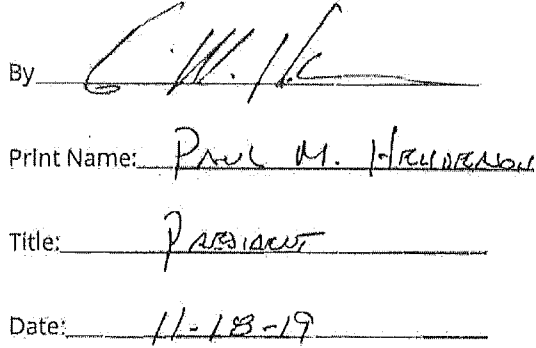 By
Print Name: PAUL M. HENDERSON
Title: PRESIDENT
Date: 11-18-19